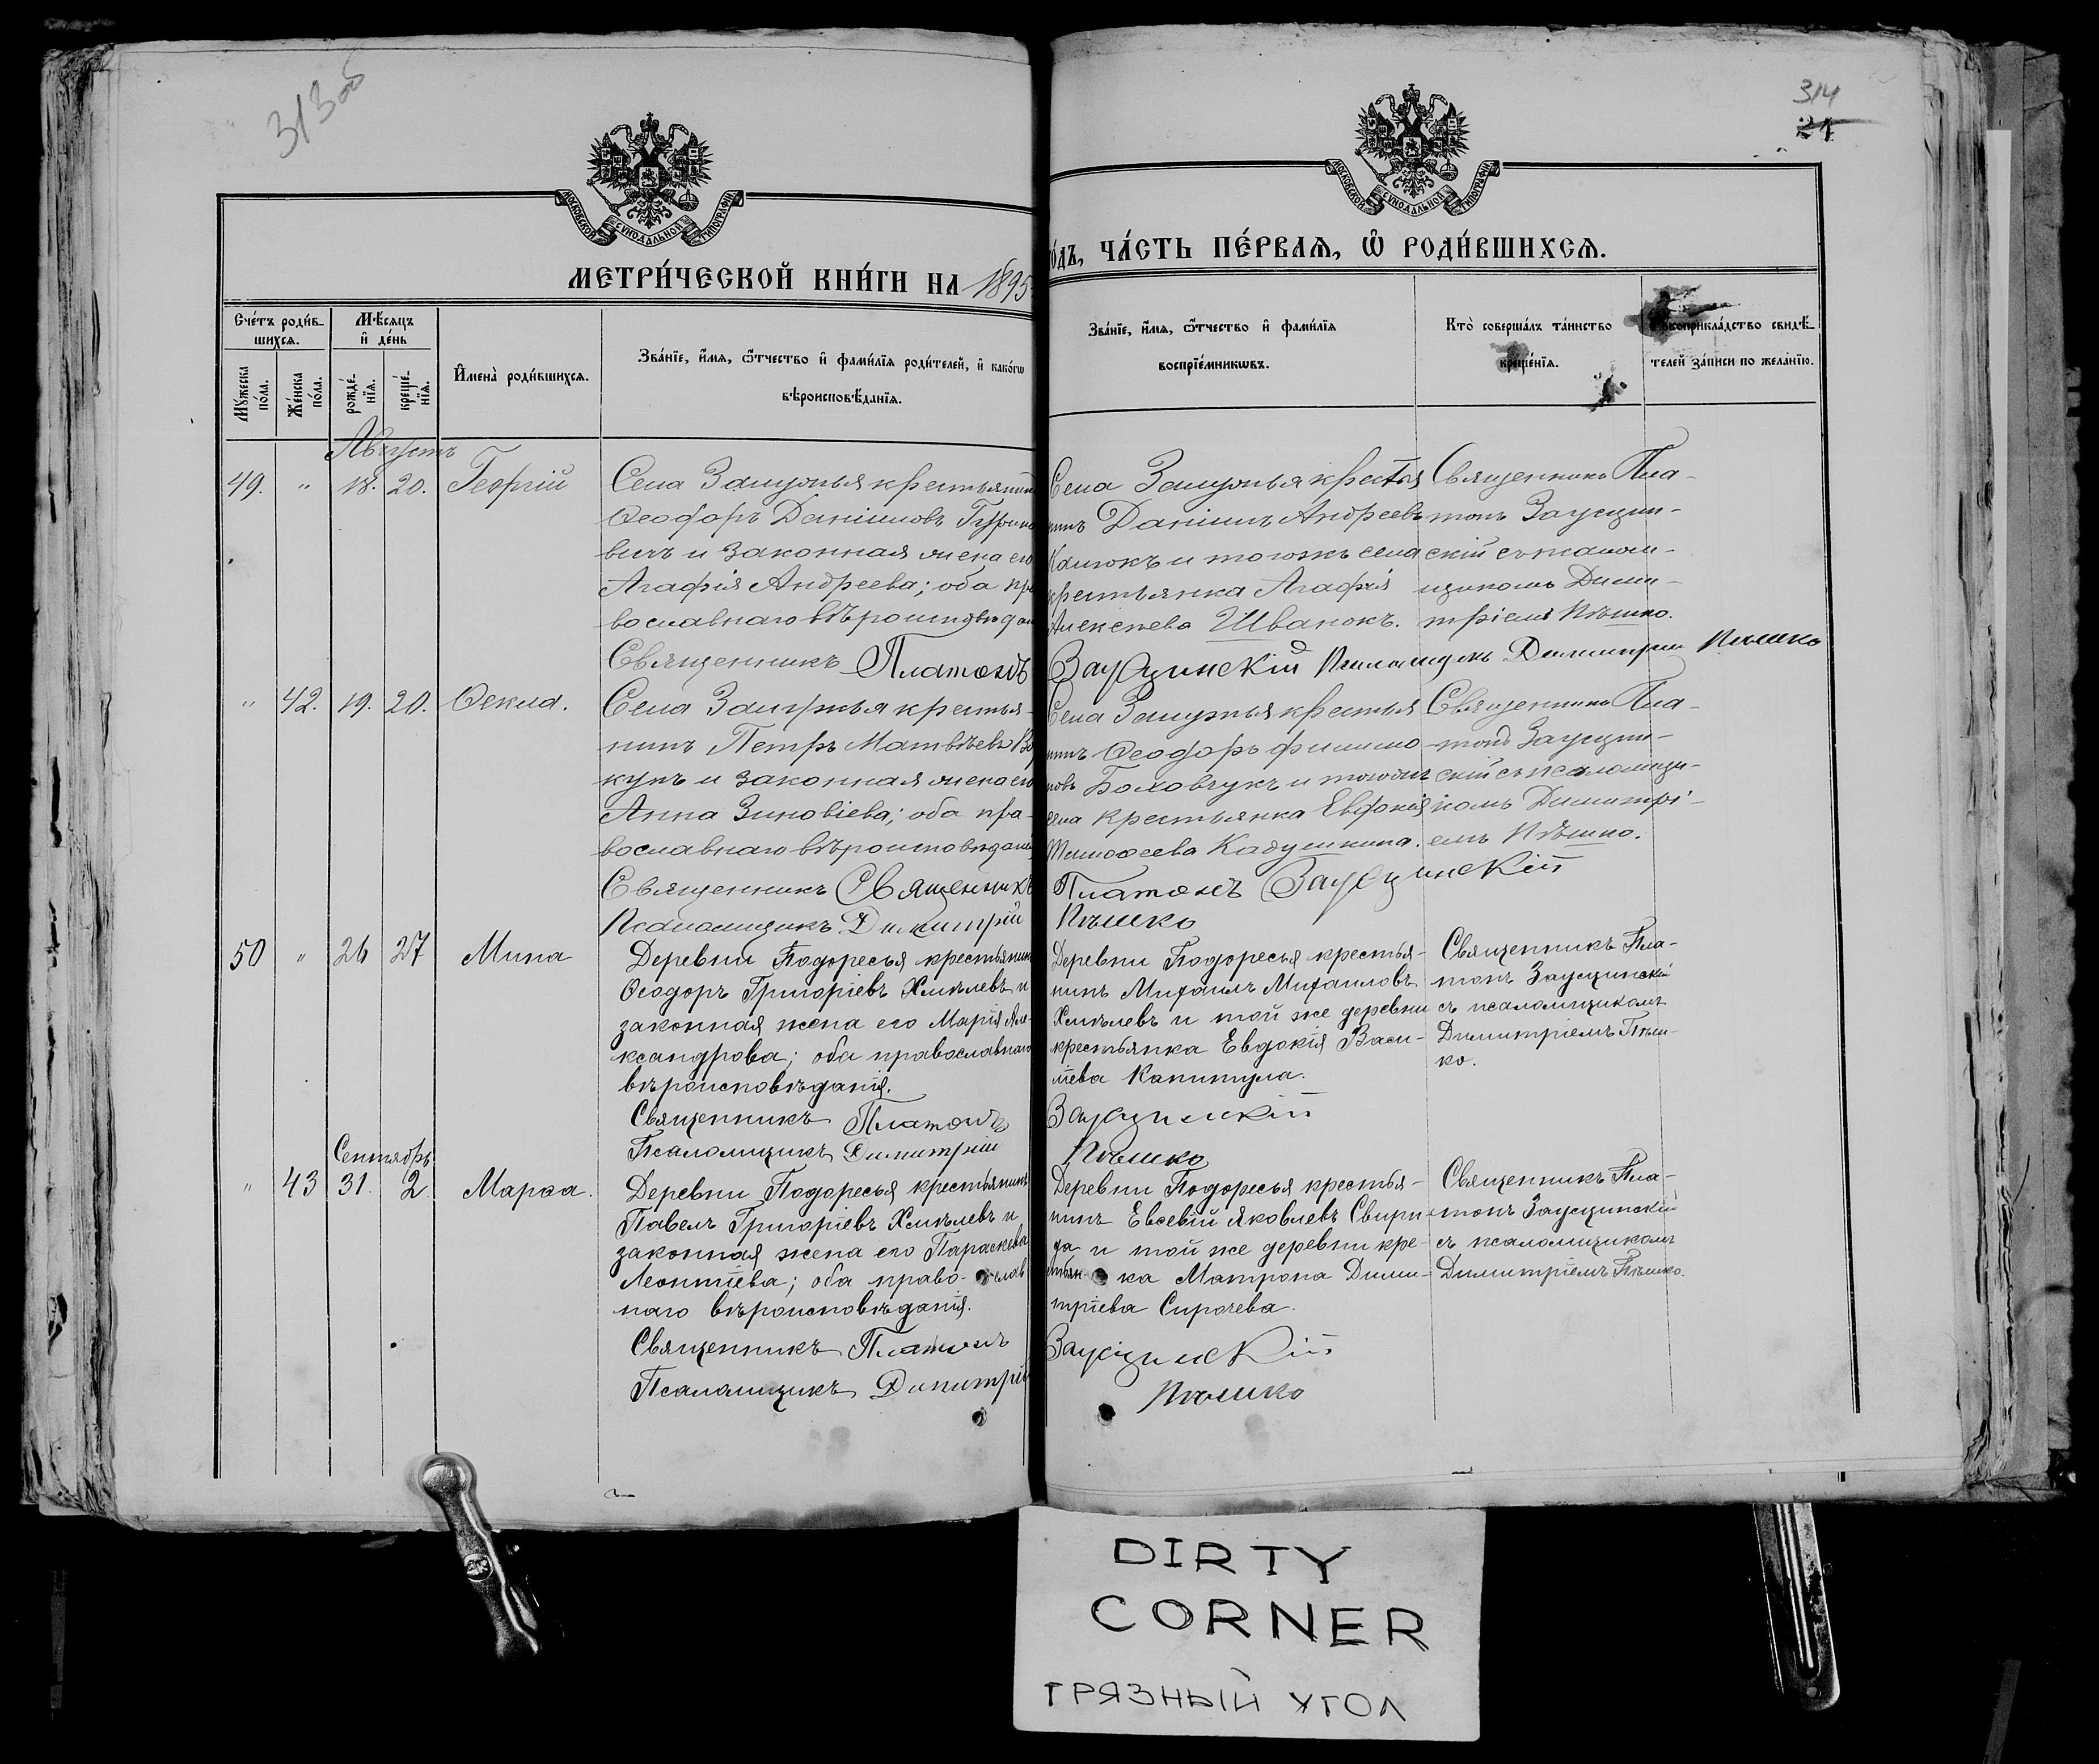 313 об
314
21
МОСКОВСКОЙ СѴНОДАЛЬНОЙ ТИПОГРАФІИ
МОСКОВСКОЙ СѴНОДАЛЬНОЙ ТИПОГРАФІИ
МЕТРИ́ЧЕСКОЙ КНИ́ГИ НА 1895
го́дъ, ЧА́СТЬ ПЕ́РВАЯ, Ѿ РОДИ́ВШИХСЯ.
Сче́тъ роди́в-
шихся.
Му́жеска по́ла.
Же́нска по́ла.
Мѣ́сяцъ и де́нь
рожде́нїя.
креще́нїя.
Имена̀ роди́вшихся.
Зва́нїе, и́мя, ѻ́тчество и фами́лїя роди́телей, и како́гѡ
вѣроисповѣ́данїя.
Зва́нїе, и́мя, ѻ́тчество и фами́лїя
воспрїе́мникѡвъ.
Кто̀ соверша́лъ та́инство
креще́нїя.
Рукоприкла́дство свидѣ́-
телей за́писи по жела́нїю.
Августъ
49. " 18. 20. Георгій
Села Замужья крестьянин
Ѳеодоръ Даніиловъ Гурино
вичъ и законная жена его
Агафія Андреева; оба пра
вославнаго вѣроисповѣдан
Священникъ Платонъ
Села Замужья крестья
нинъ Даніилъ Андреевъ
и тогожъ села
крестьянка Агафія
Алексѣева Шванокъ.
Священникъ Пла-
тонъ Заусцин-
скій съ псалом-
щикомъ Дими-
тріемъ Пѣшко.
Заусцинскій Псаломщикъ Димитрій Пѣшко
" 42. 19. 20. Ѳекла.
Села Замужья крестья-
нинъ Петръ Матвѣевъ
кунъ и законная жена его
Анна Зиновіева; оба пра-
вославнаго вѣроисповѣдані
Священникъ Священникъ
Псаломщикъ Димитрій
Села Замужья крестья
нинъ Ѳеодоръ Филимо-
новъ Боховчукъ и тогожъ
села крестьянка Евфимія
Тимоѳеева Кадушкина.
Священникъ Пла-
тонъ Заусцин-
скій съ псаломщи-
комъ Димитрі-
емъ Пѣшко.
Платонъ Заусцинскій
Пѣшко
50 " 26 27 Мина
Деревни Подоресья крестьянин
Ѳеодоръ Григоріевъ Хмѣлевъ и
законная жена его Марія Але-
ксандрова; оба православнаго
вѣроисповѣданія.
Священникъ Платонъ
Псаломщикъ Димитрій
Деревни Подоресья крестья-
нинъ Михаилъ Михаиловъ
Хмѣлевъ и той же деревни
крестьянка Евдокія Васи-
ліева Капитула.
Священникъ Пла-
тонъ Заусцинскій
съ псаломщикомъ
Димитріемъ Пѣш-
ко.
Заусцинскій
Пѣшко
Сентябрь
" 43 31. 2 Марѳа.
Деревни Подоресья крестьянинъ
Павелъ Григоріевъ Хмѣлевъ и
законная жена его Параскева
Леонтіева; оба право-слав
наго вѣроисповѣданія.
Священникъ Платонъ
Псаломщикъ Димитрій
Деревни Подоресья крестья-
нинъ Евсевій Яковлевъ Свири-
да и той же деревни кре-
стьян-ка Матрона Дими-
тріева Сирочева.
Священникъ Пла-
тонъ Заусцинскій
съ псаломщикомъ
Димитріемъ Пѣшко.
Заусцинскій
Пѣшко
DIRTY
CORNER
ГРЯЗНЫЙ УГОЛ